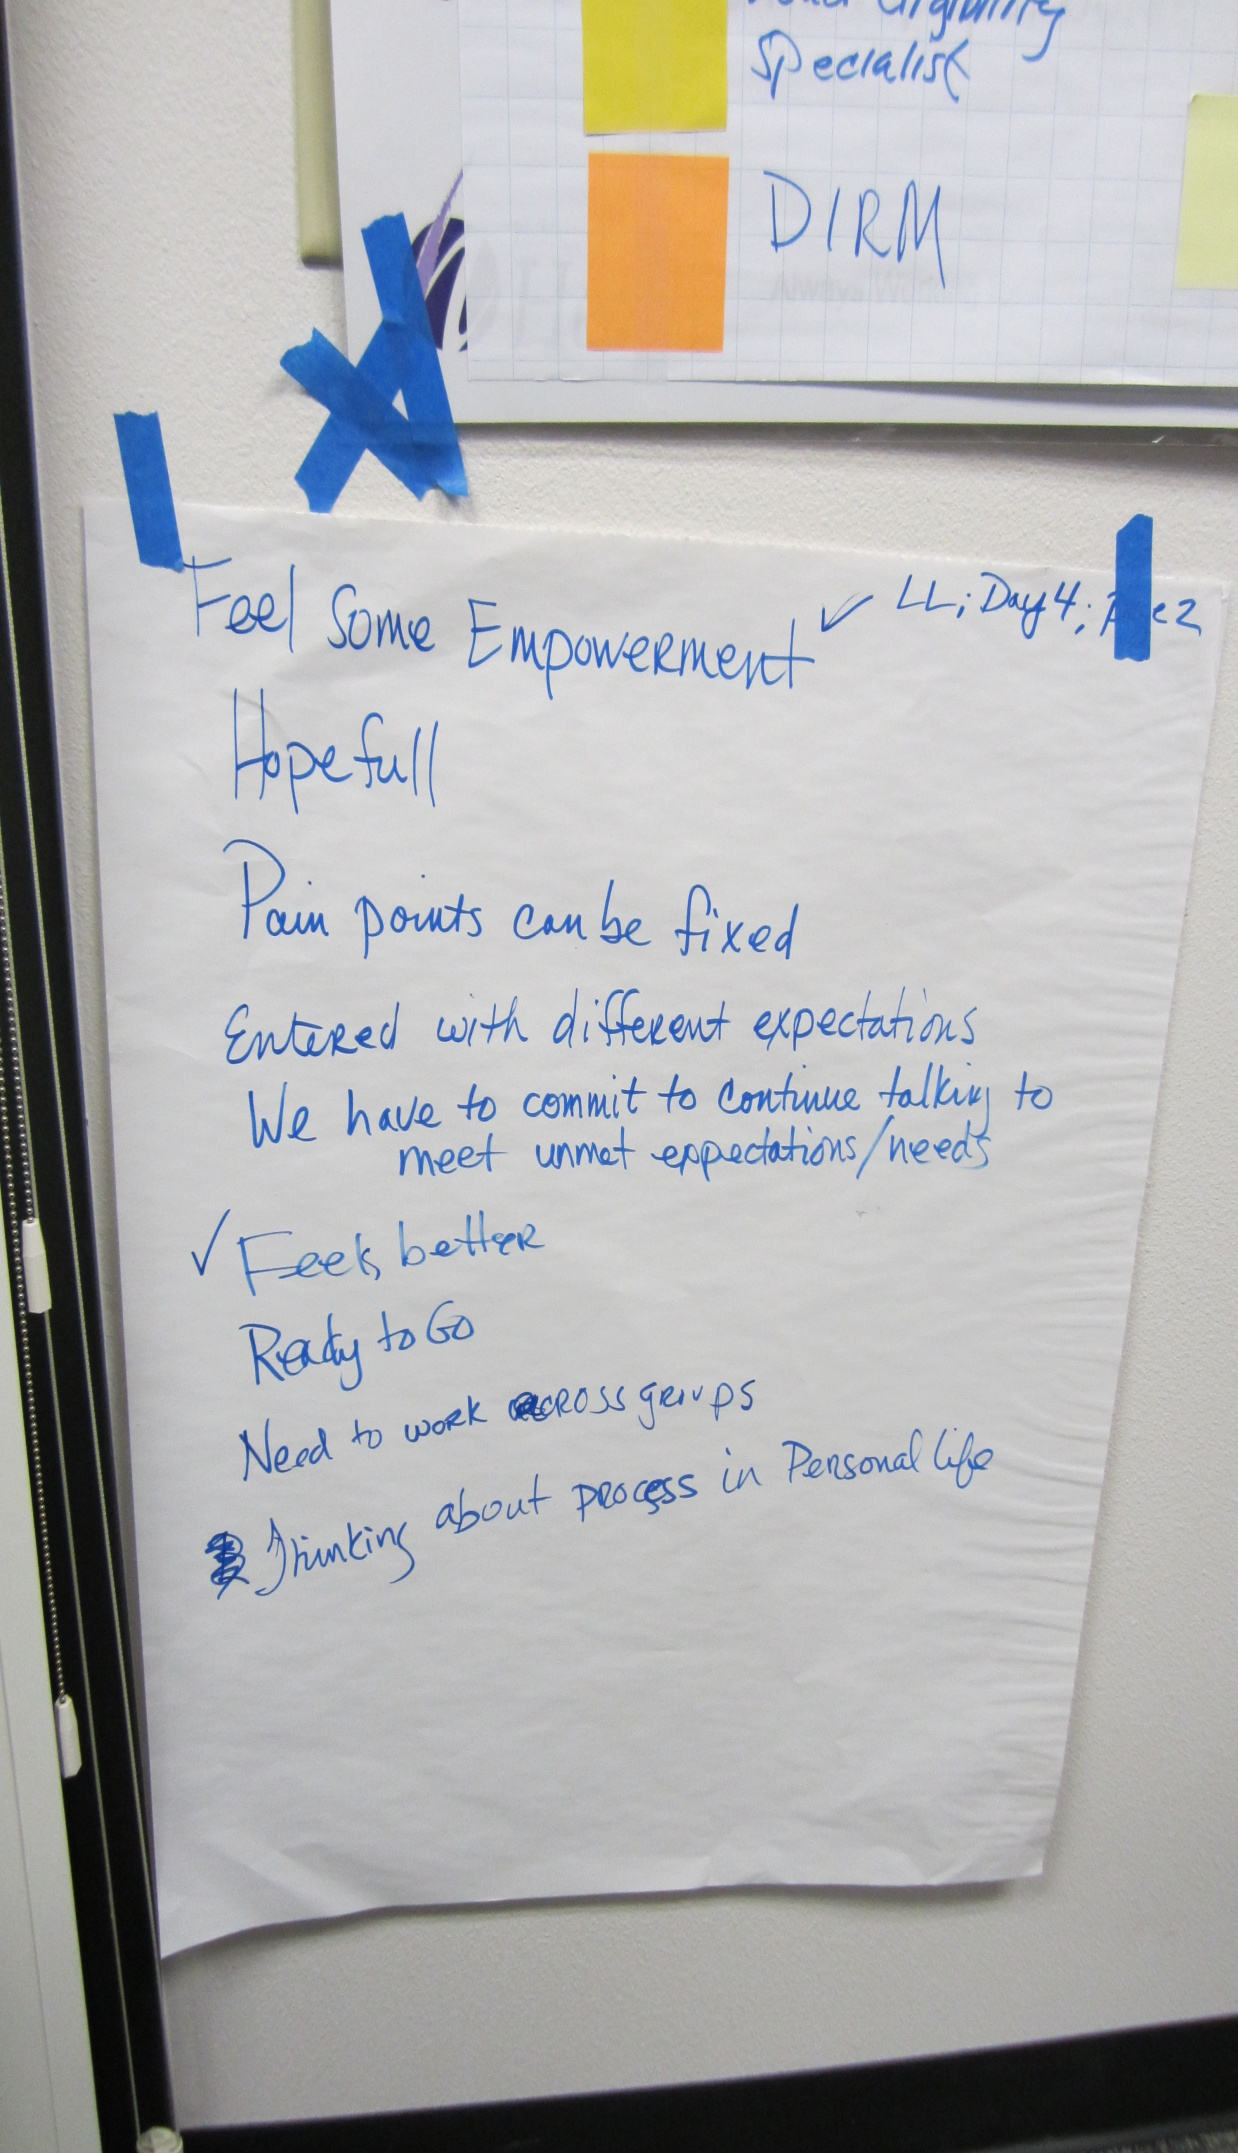 Specialist
DIRM
LL; Day 4; 2
Feel Some Empowerment ✓
Hopefull
Pain points can be fixed
Entered with different expectations
We have to commit to continue talking to
meet unmet expectations/needs
✓ Feels better
Ready to Go
Need to work across groups
Thinking about process in Personal life